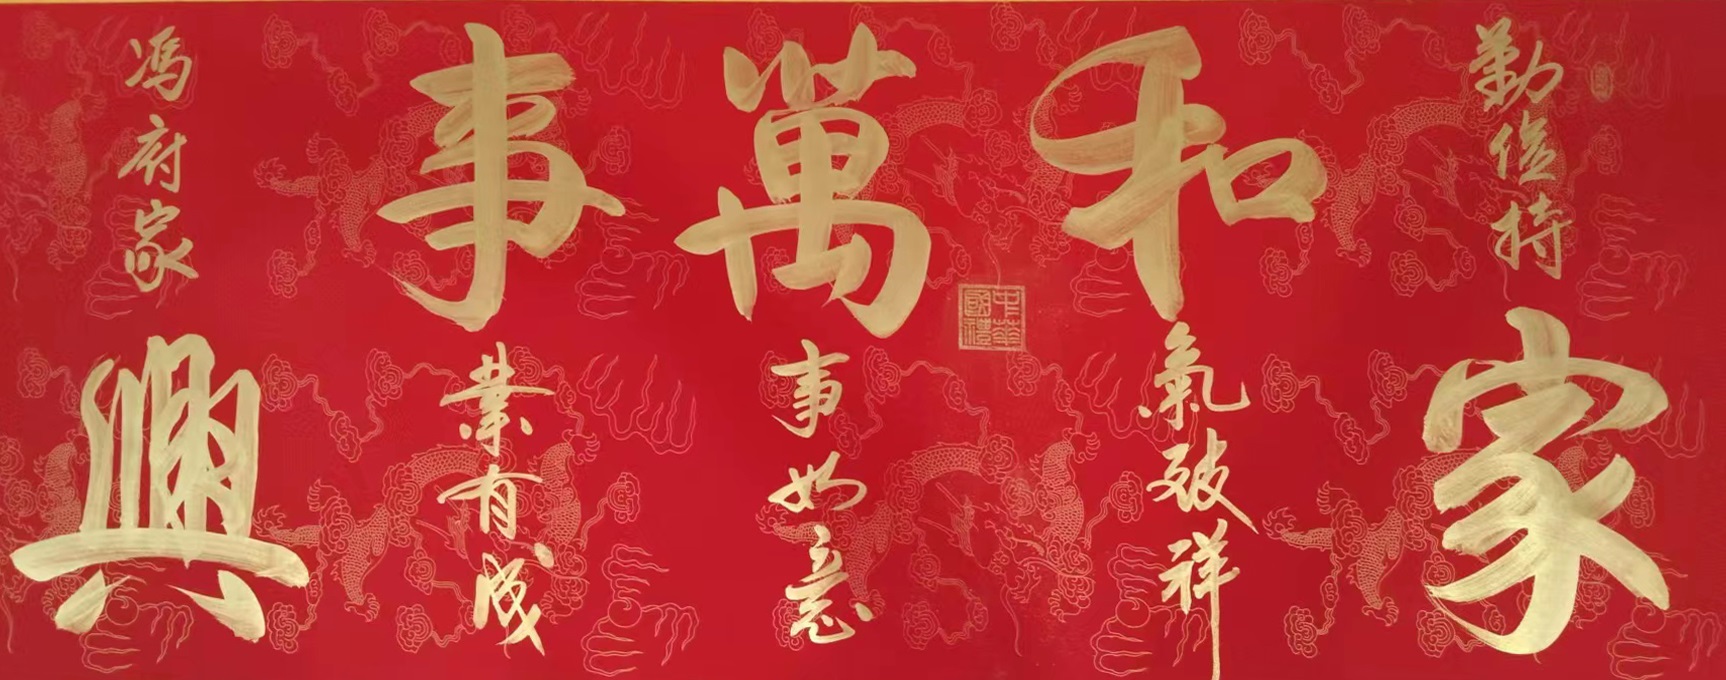 勤儉持家
和氣致祥
萬事如意
事業有成
馮府家興
中華國禮